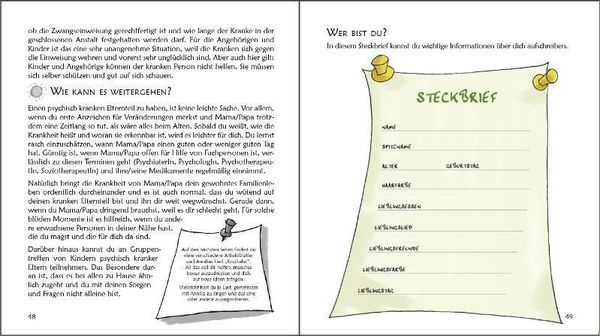 ob die Zwangseinweisung gerechtfertigt ist und wie lange der Kranke in der
geschlossenen Anstalt festgehalten werden darf. Für die Angehörigen und
Kinder ist das eine sehr unangenehme Situation, weil die Kranken sich gegen
die Einweisung wehren und vorerst sehr unglücklich sind. Aber auch hier gilt:
Kinder und Angehörige können der kranken Person nicht helfen. Sie müssen
sich selber schützen und gut auf sich schauen.
Wie kann es weitergehen?
Einen psychisch kranken Elternteil zu haben, ist keine leichte Sache. Vor allem,
wenn du erste Anzeichen für Veränderungen merkst und Mama/Papa trotz-
dem eine Zeitlang so tut, als wäre alles beim Alten. Sobald du weißt, wie die
Krankheit heißt und woran sie erkennbar ist, wird es leichter für dich. Du lernst
rasch einzuschätzen, wann Mama/Papa einen guten oder weniger guten Tag
hat. Günstig ist, wenn Mama/Papa offen für Hilfe von Fachpersonen ist, ver-
lässlich zu diesen Terminen geht (PsychiaterIn, PsychologIn, Psychotherapeu-
tIn, SoziotherapeutIn) und ihre/seine Medikamente regelmäßig einnimmt.
Natürlich bringt die Krankheit von Mama/Papa dein gewohntes Familienle-
ben ordentlich durcheinander und es ist auch normal, dass du wütend auf
deinen kranken Elternteil bist und ihn dir weit wegwünschst. Gerade dann,
wenn du Mama/Papa dringend brauchst, weil es dir schlecht geht. Für solche
blöden Momente ist es hilfreich, wenn du ande-
re erwachsene Personen in deiner Nähe hast,
die du magst und die für dich da sind.
Darüber hinaus kannst du an Gruppen-
treffen von Kindern psychisch kranker
Eltern teilnehmen. Das Besondere dar-
an ist, dass es bei allen zu Hause ähn-
lich zugeht und du mit deinen Sorgen
und Fragen nicht alleine bist.
Auf den nächsten Seiten findest du
viele verschiedene Arbeitsblätter
All das soll dir helfen, manches
besser auszudrücken und dich
auf neue Ideen bringen.
Vielleicht hast du ja Lust, gemeinsam
mit Annika zu singen und das eine
oder andere auszuprobieren.
48
Wer bist du?
In diesem Steckbrief kannst du wichtige Informationen über dich aufschreiben.
STECKBRIEF
NAME
SPITZNAME
ALTER GEBURTSTAG
HAARFARBE
LIEBLINGSESSEN
LIEBLINGSLIED
LIEBLINGSFREUNDE
LIEBLINGSFARBE
LIEBLINGSTAG
49